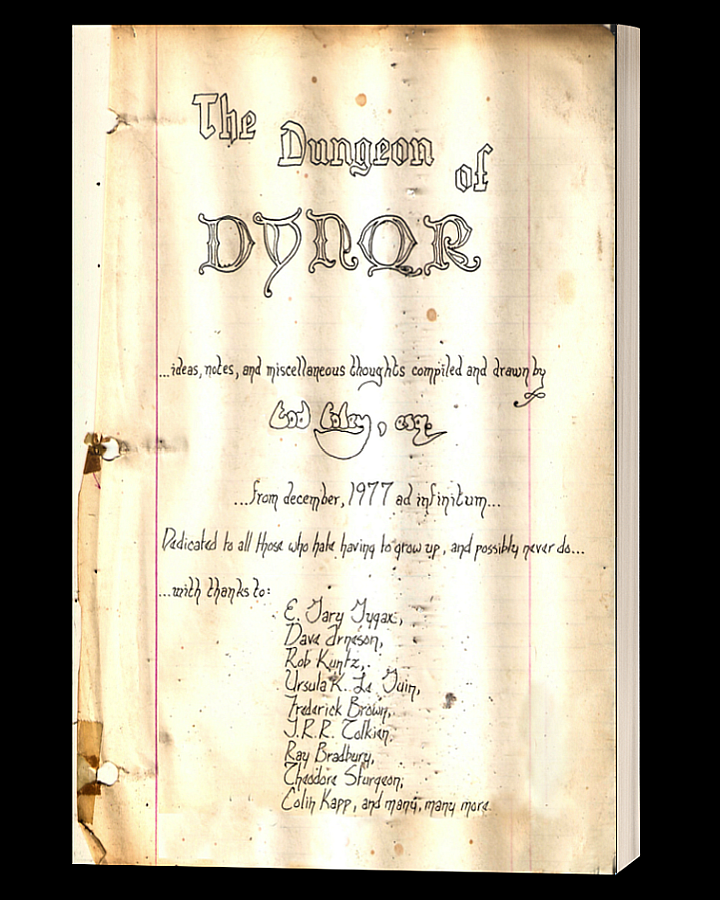 The Dungeon of
DYNQR
...ideas, notes, and miscellaneous thoughts compiled and drawn by
Tod Foley, esq.
...from december, 1977 ad infinitum...
Dedicated to all those who hate having to grow up, and possibly never do...
...with thanks to:
E. Gary Gygax,
Dave Arneson,
Rob Kuntz,
Ursula K. Le Guin,
Frederick Brown,
J.R.R. Tolkien,
Ray Bradbury,
Theodore Sturgeon,
Colin Kapp, and many, many more